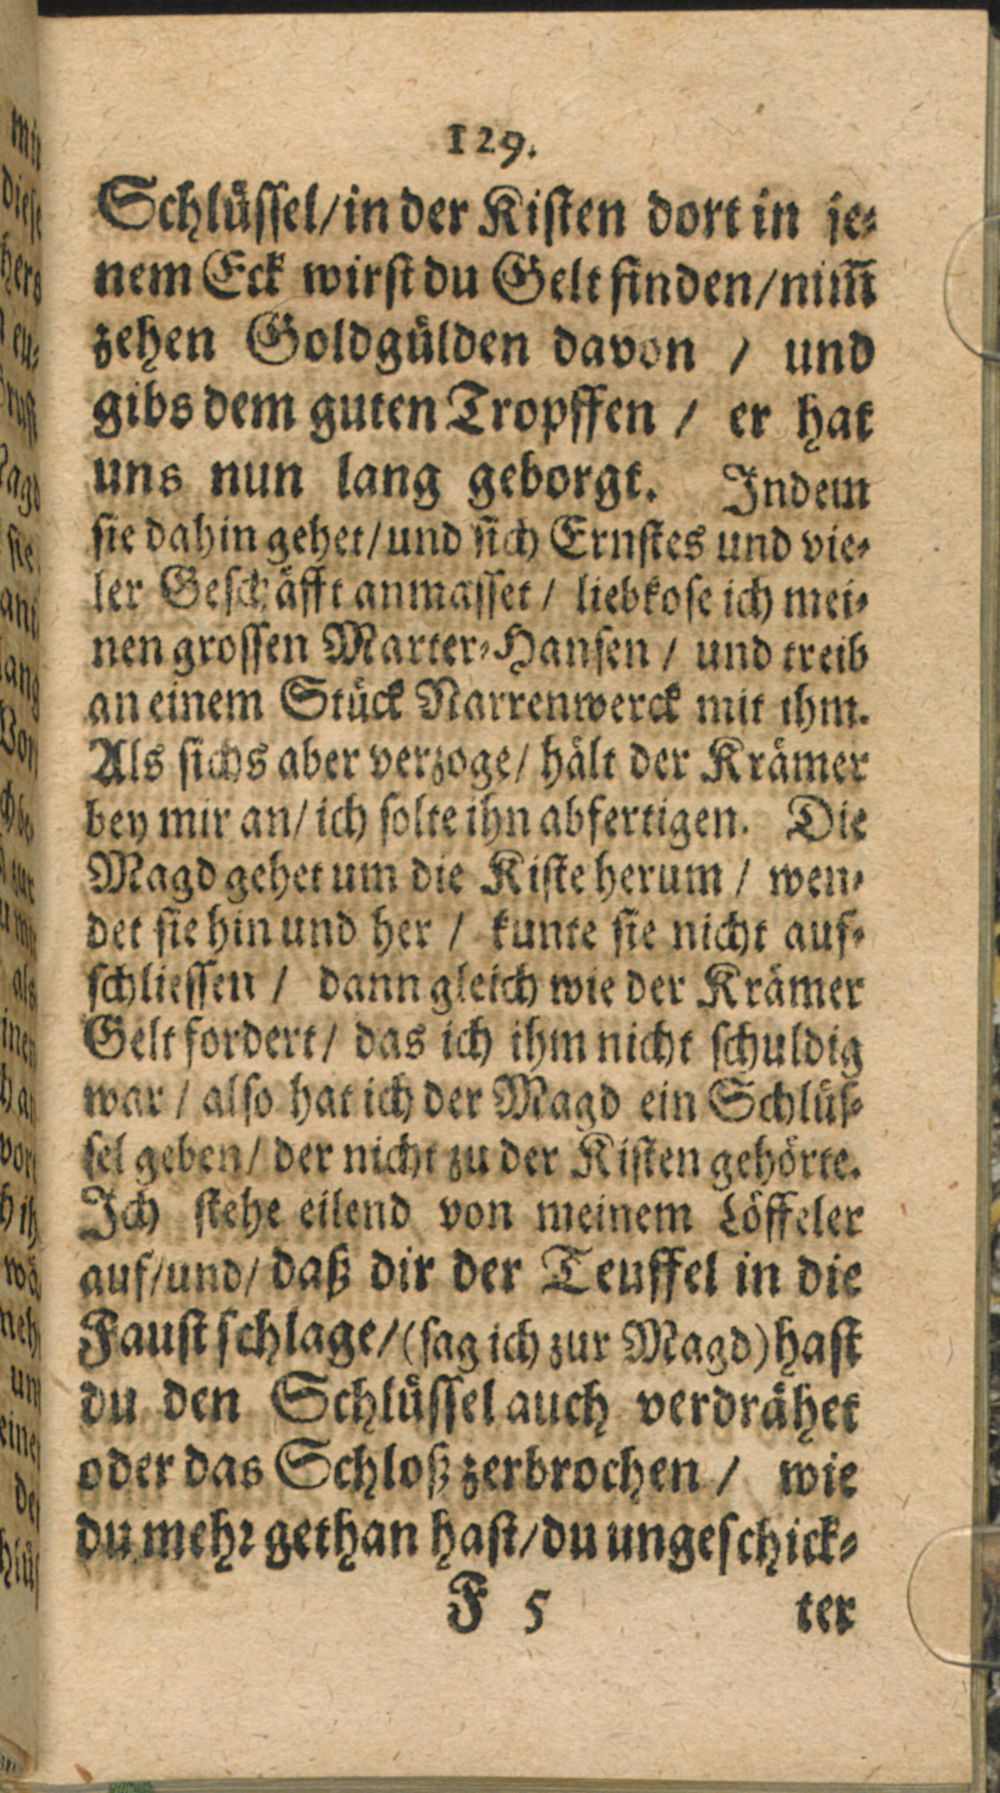 129.
Schlüssel/in der Kisten dort in je-
nem Eck wirst du Gelt finden/nim̅
zehen Goldgülden davon / und
gibs dem guten Tropffen / er hat
uns nun lang geborgt. Indem
sie dahin gehet/und sich Ernstes und vie-
ler Geschäfft anmasset / liebkose ich mei-
nen grossen Marter-Hansen / und treib
an einem Stück Narrenwerck mit ihm.
Als sichs aber verzoge/ hält der Krämer
bey mir an/ ich solte ihn abfertigen. Die
Magd gehet um die Kiste herum / wen-
det sie hin und her / kunte sie nicht auf-
schliessen / dann gleich wie der Krämer
Gelt fordert/ das ich ihm nicht schuldig
war / also hat ich der Magd ein Schlüs-
sel geben/ der nicht zu der Kisten gehörte.
Ich stehe eilend von meinem Löffeler
auf/und/ daß dir der Teuffel in die
Faust schlage/(sag ich zur Magd) hast
du den Schlüssel auch verdrähet
oder das Schloß zerbrochen / wie
du mehr gethan hast/du ungeschick-
F 5 ter